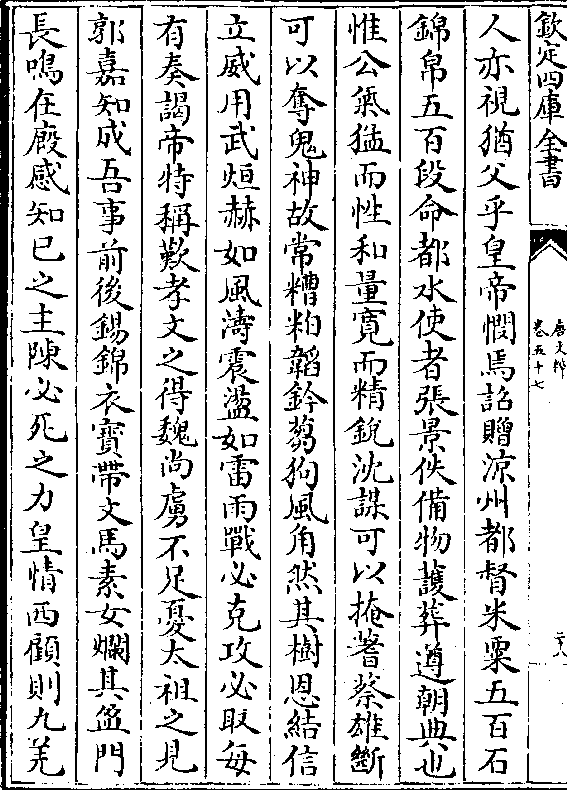 欽定四庫全書
唐文粹
卷五十七
二十八
人亦視猶父乎皇帝憫焉詔贈涼州都督米粟五百石
錦帛五百段命都水使者張景佚備物護葬遵朝典也
惟公氣猛而性和量寛而精銳沈謀可以掩蓍蔡雄斷
可以奪鬼神故常糟粕韜鈐芻狗風角然其樹恩結信
立威用武烜赫如風濤震盪如雷雨戰必克攻必取每
有奏謁帝特稱歎孝文之得魏尚虜不足憂太祖之見
郭嘉知成吾事前後錫錦衣寳帶文馬素女爛其盈門
長鳴在廄感知已之主陳必死之力皇情西顧則九羌